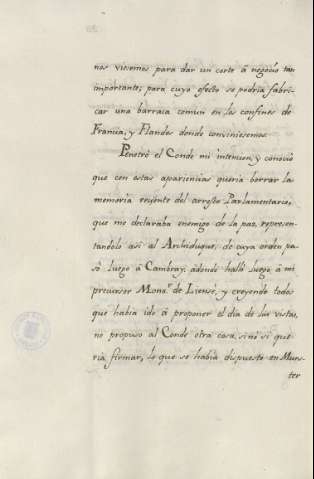 nos viesemos para dar un corte à negocio tan
importante; para cuyo efecto se podria fabri-
car una barraca comun en los confines de
Francia, y Flandes donde conviniesemos.
Penetró el Conde mi intencion, y conoció
que con estas apariencias queria borrar la
memoria reciente del arresto Parlamentario,
que me declaraba enemigo de la paz, represen-
tandolo asi al Archiduque, de cuya orden pa-
só luego à Cambray, adonde halló luego à mi
precursor Mons.r de Liensé, y creyendo todos
que habia ido à proponer el dia de las vistas,
no propuso al Conde otra cosa, sinó si que-
ria firmar, lo que se habia dispuesto en Muns-
ter